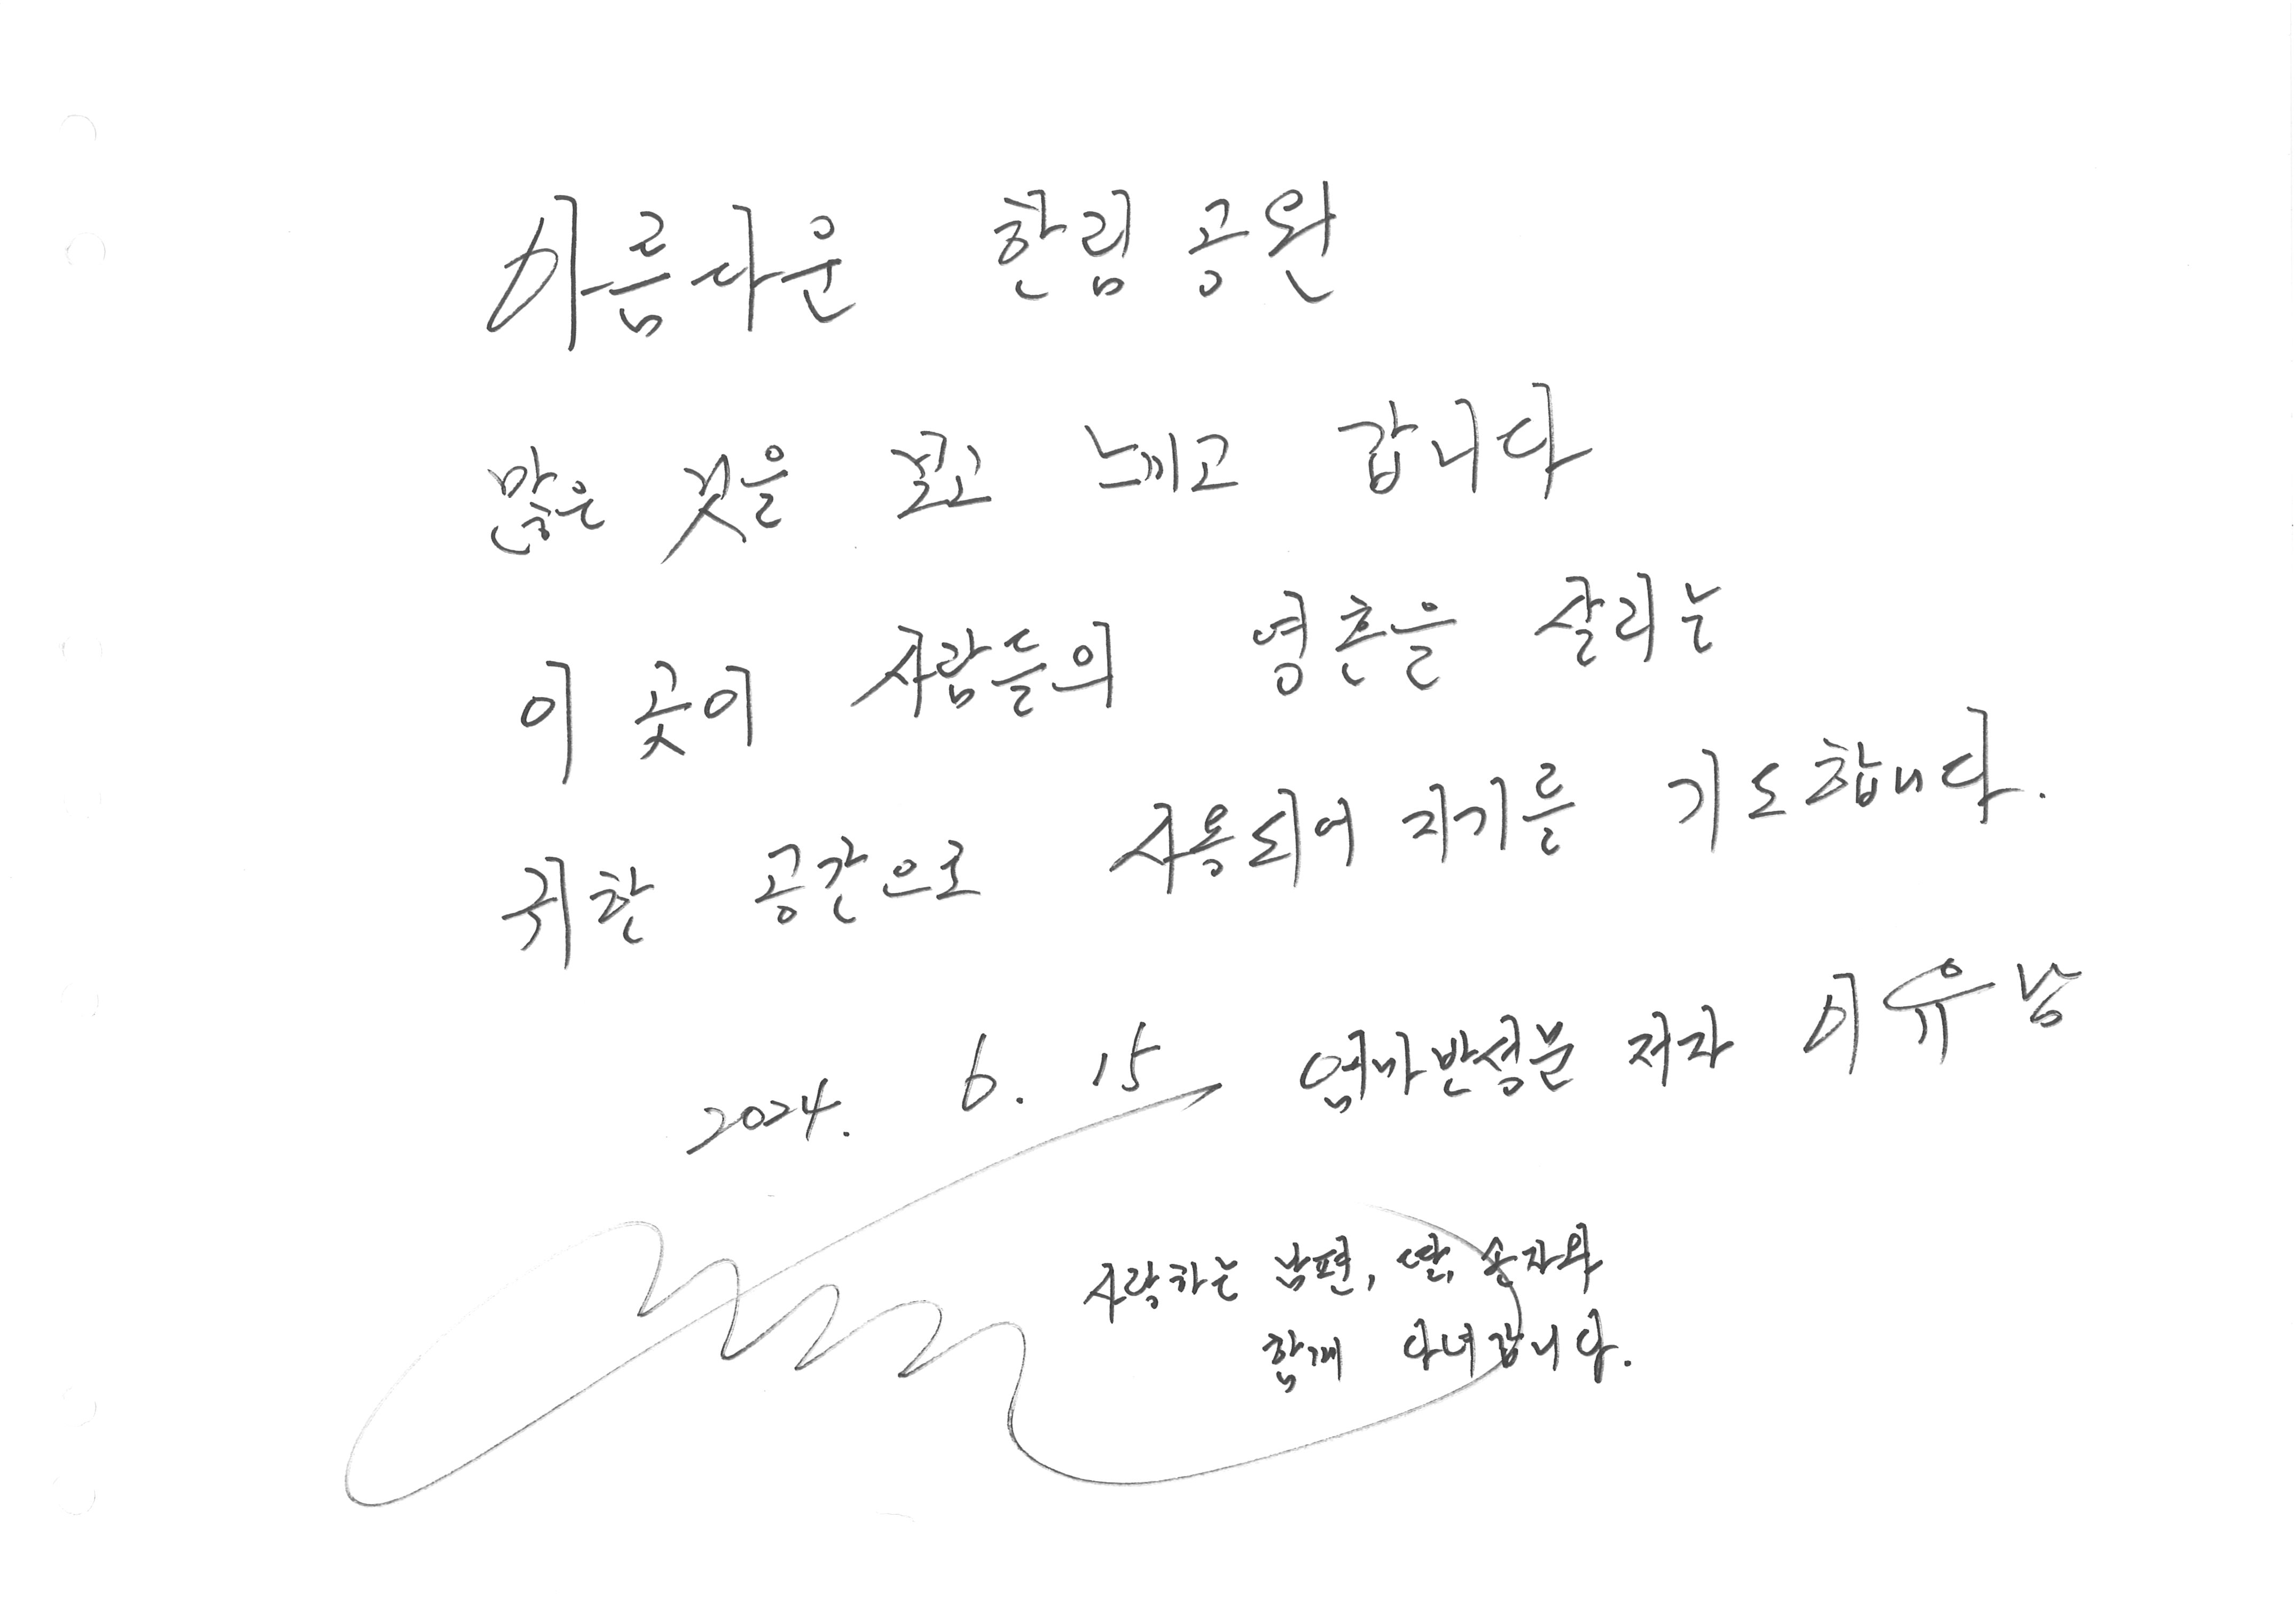 아름다운 한림 공원
많은 것을 보고 느끼고 갑니다
이 곳이 사람들의 영혼을 살리는
귀한 공간으로 사용되어 지기를 기도합니다.
2024. 6. 15 엄마반성문 저자 이유남
사랑하는 남편, 딸, 손자와
함께 다녀갑니다.